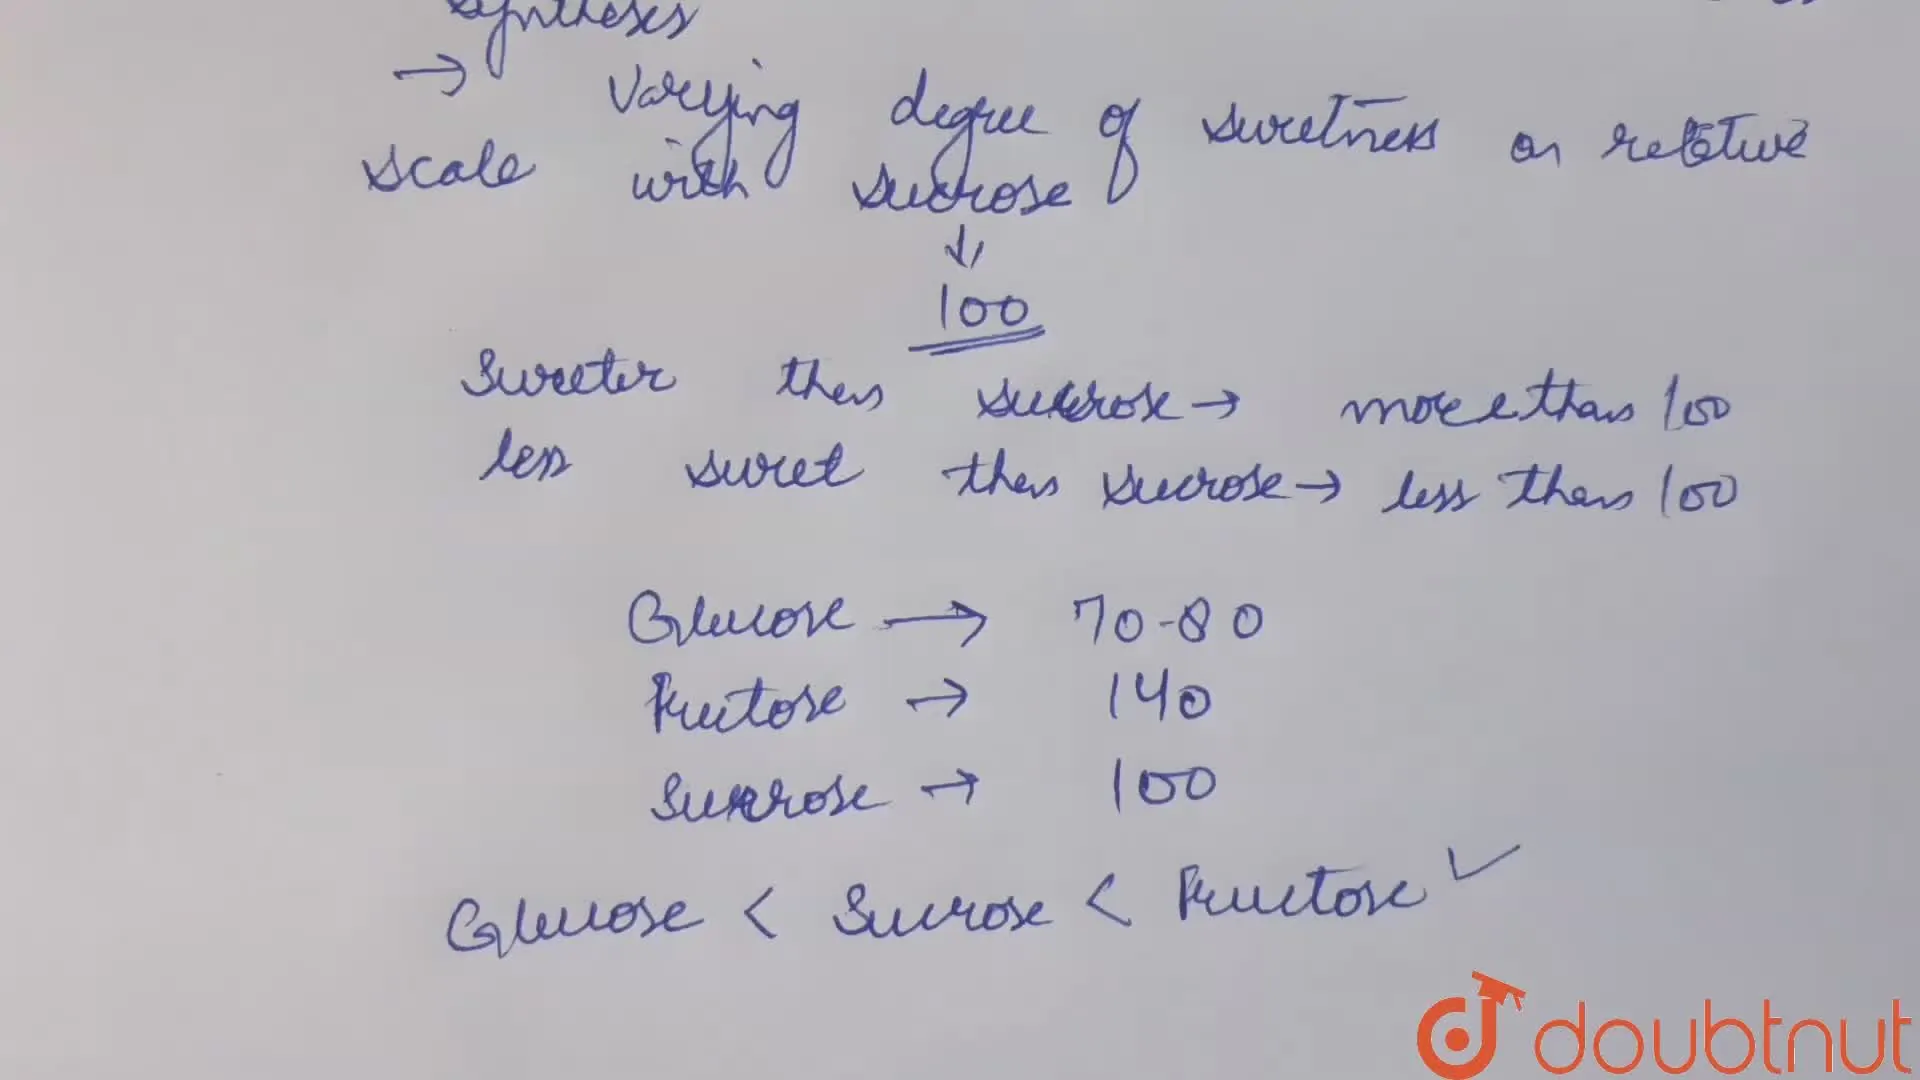 syntheses
→ Varying degree of sweetness on relative
scale with sucrose
↓
100
Sweeter then sucrose → more than 100
less sweet then sucrose → less then 100
Glucose → 70-80
Fructose → 140
Sucrose → 100
Glucose < Sucrose < Fructose ✓
doubtnut